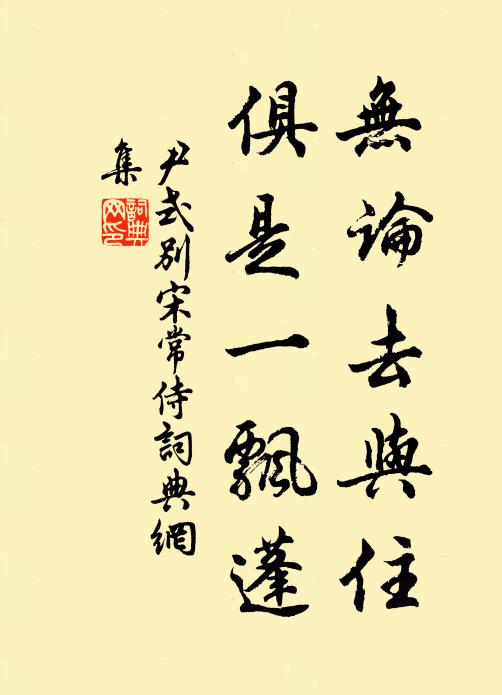 無論去與住
俱是一飄蓬
尹式別宋常侍詞典網
集
詞典網印